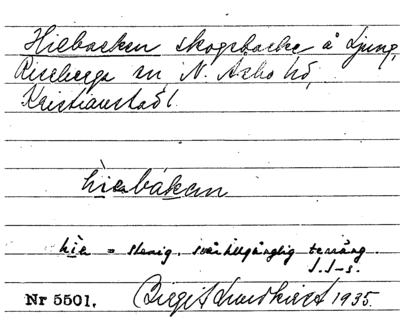 Hiebacken skogsbacke å Ljung,
Riseberga sn N. Åsbo hd,
Kristianstad l.
hìebákan
hìe = stenig, svårtillgänglig terräng.
J.J-s.
Nr 5501. Birgit Lundkvist 1935.